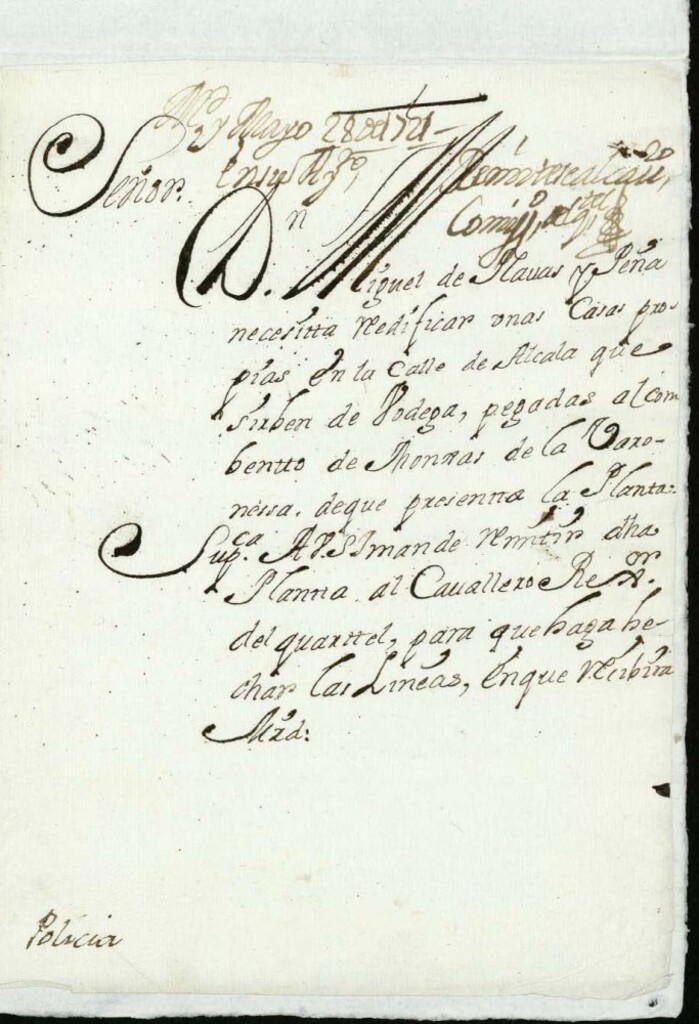 Md y Mayo 28 de 1721
Señor. En su Ayto,
Remitese al cau,
Comiso, del
Dn Miguel de Nauas y Peña
necesitta redificar vnas Casas pro-
pias en la Calle de Alcala que
sirben de Vodega, pegadas al com
bentto de Monxas de la Varo-
nessa. deque presentta la Planta:
Supca. A V.S.I. mande remitir dha
Planta al Cauallero Rexor.
del quarttel, para que haga he-
char las Lineas, en que reciuira
Mrd:
Policia